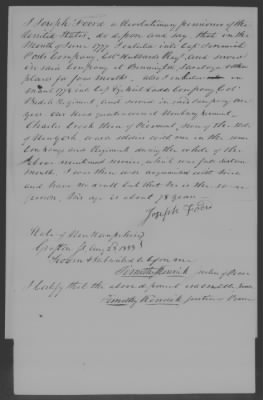 I Joseph Foord a Revolutionary pensioner of the
United States, do depose and say that in the
Month of June 1777 I enlisted into Capt Jeremiah
Posts Company, Col Hubbards Regt, and served
in said Company at Bennington Saratoga & other
places for four months. also I enlisted in
1778 into Capt Ezekiel Ladds Company Col
Bedels Regiment, and served in said Company one
year our head quarters was at Newbury Vermont,
Charles Crook then of Piermont, now of the State
of New York was a soldier with me in the same
Company and Regiment during the whole of the
above mentioned service, which was full sixteen
Months. I was then well acquainted with him
and have no doubt but that he is the same
person, his age is about 78 years
Joseph Foord
State of New Hampshire
Grafton ss Aug 23 1833
Sworn & Subscribed before me
Timothy Kenrick Justice of Peace
I Certify that the above deponent is a credible man
Timothy Kenrick Justice of Peace